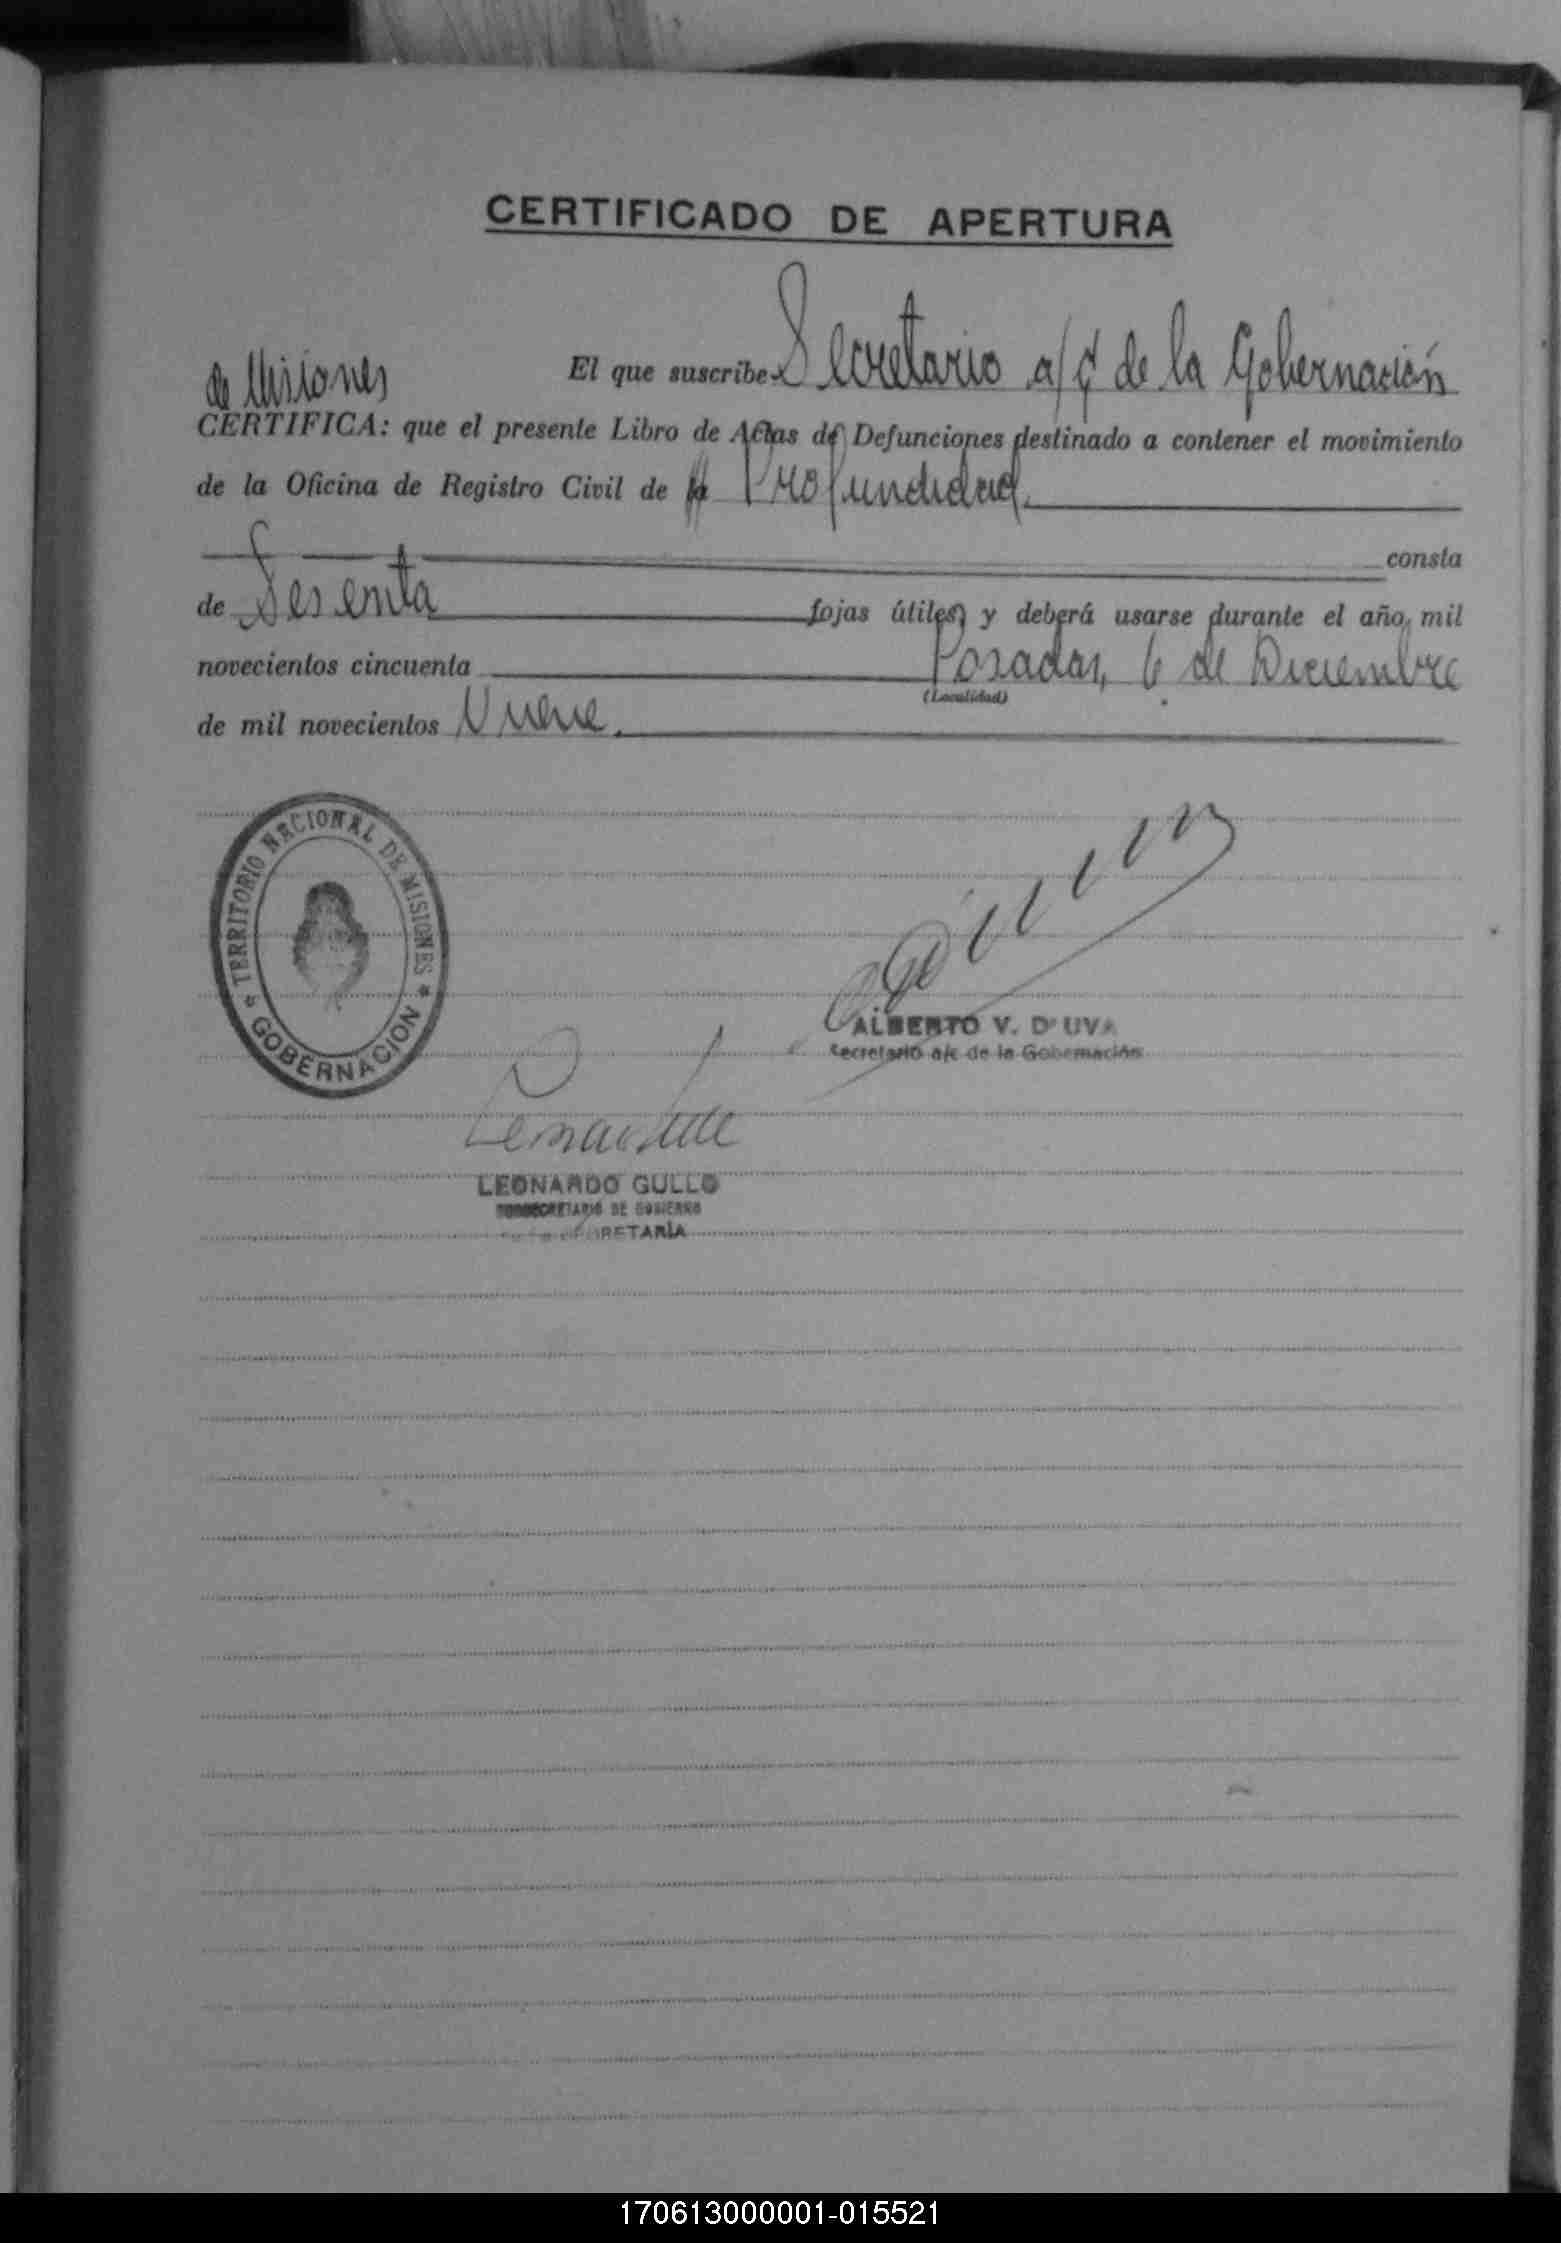 CERTIFICADO DE APERTURA
El que suscribe Secretario a/c de la Gobernación
de Misiones
CERTIFICA: que el presente Libro de Actas de Defunciones destinado a contener el movimiento
de la Oficina de Registro Civil de Profundidad.
consta
de Sesenta fojas útiles y deberá usarse durante el año mil
novecientos cincuenta Posadas, 6 de Diciembre
(Localidad)
de mil novecientos Nueve.
TERRITORIO NACIONAL DE MISIONES
* GOBERNACION *
ALBERTO V. D'UVA
Secretario a/c de la Gobernación
LEONARDO GULLO
SUBSECRETARIO DE GOBIERNO
170613000001-015521